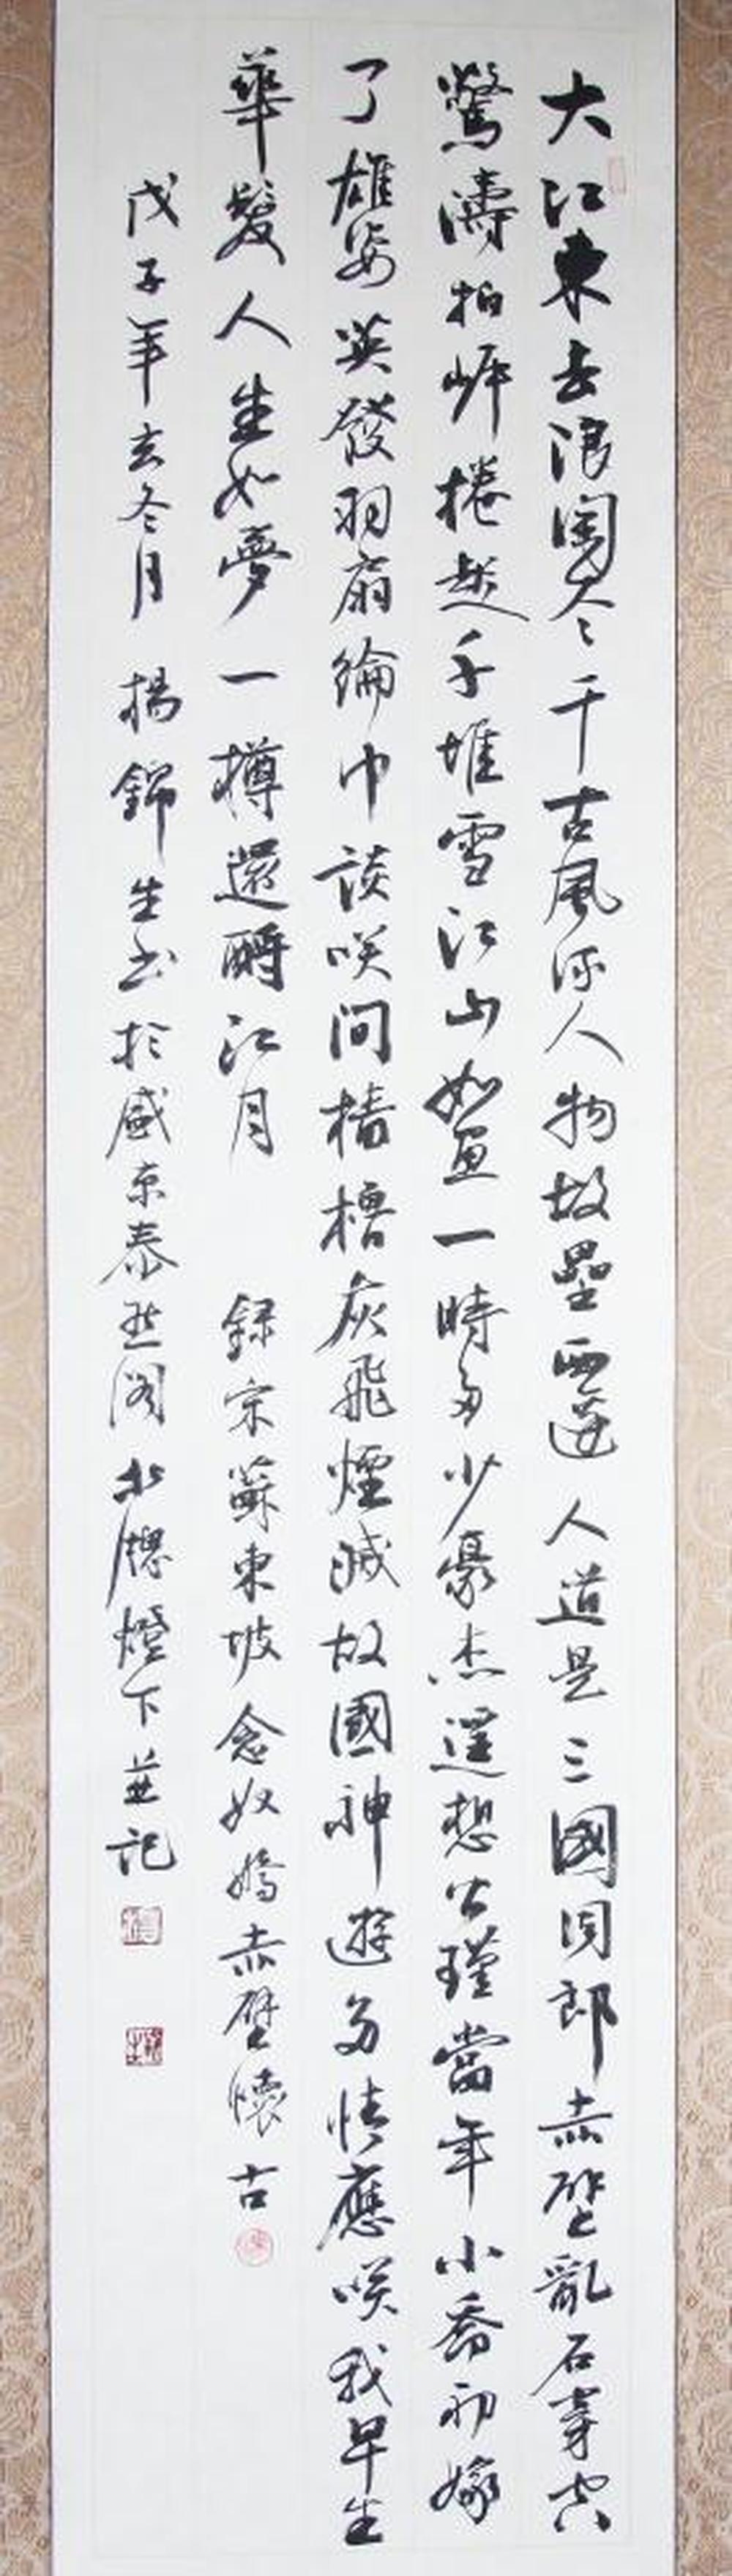 大江東去浪淘尽千古風流人物故壘西邊人道是三國周郎赤壁亂石穿空
驚濤拍岸捲起千堆雪江山如画一時多少豪杰遥想公瑾當年小喬初嫁
了雄姿英發羽扇綸巾談咲间檣櫓灰飛煙滅故國神遊多情應咲我早生
華髮人生如夢一樽還酹江月 録宋蘇東坡念奴嬌赤壁懷古
戊子年玄冬月楊錦生书於盛京泰然阁北牕燈下並記